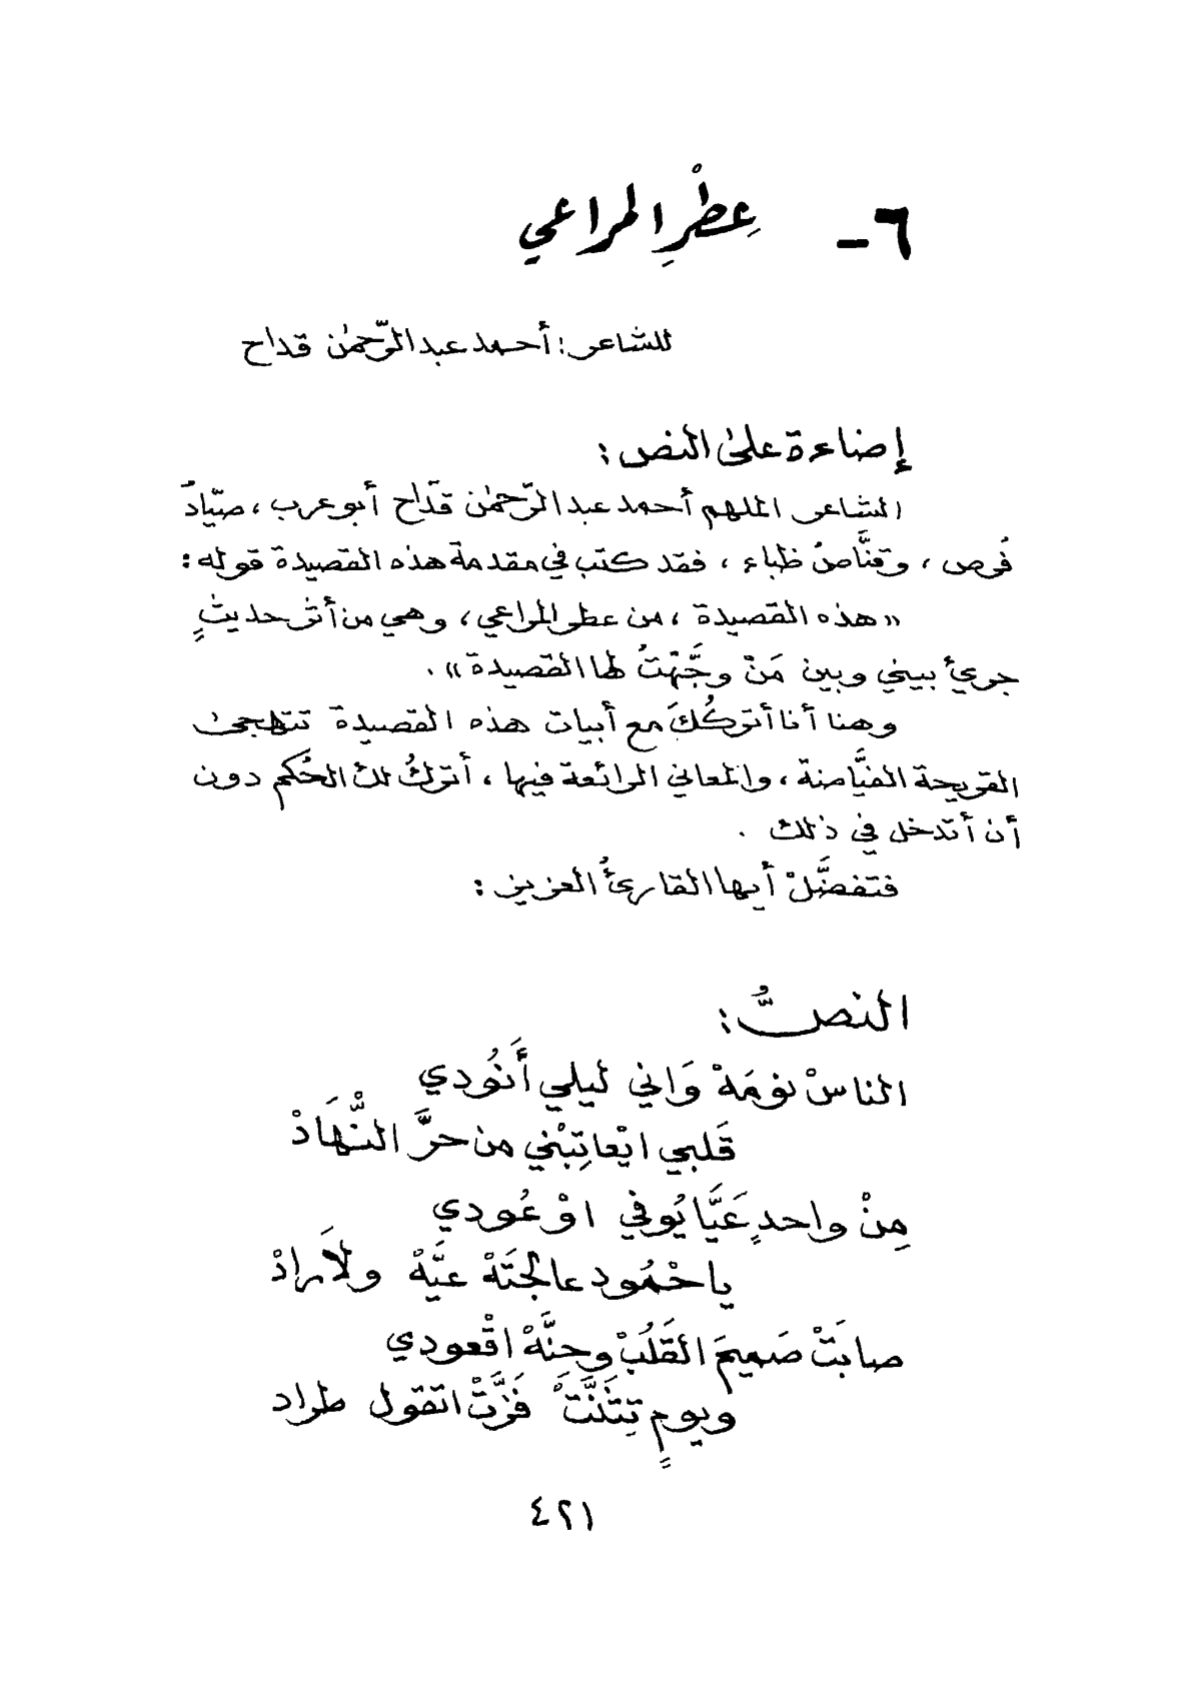 ٦ - عِطْرِ المراعي
للشاعر: أحمد عبد الرّحمٰن قداح
إضاءة علىٰ النص:
الشاعر الملهم أحمد عبد الرّحمٰن قدّاح أبو عرب، صيّادُ
فُرص، وقنَّاصُ ظباء، فقد كتب في مقدمة هذه القصيدة قوله:
«هذه القصيدة، من عطر المراعي، وهي من أثر حديثٍ
جريءٍ بيني وبين مَنْ وجَّهْتُ لها القصيدة».
وهنا أنا أتركُكَ مع أبيات هذه القصيدة تتهجىٰ
القريحة الفيَّاضة، والمعاني الرائعة فيها، أتركُ لك الحُكم دون
أن أتدخل في ذلك.
فتفضَّلْ أيها القارئُ العزيز:
النصُّ:
الناسْ نومَهْ وَاني ليلي أَنُودي
قَلبي ايْعاتِبْني من حرَّ النّْهَادْ
مِنْ واحدٍ عَيَّا يُوفي اوْ عُودي
يا حْمُود عالجتَهْ عيَّهْ ولاَ رادْ
صابَتْ صَميمَ القَلُبْ وحِنَّهْ اقْعودي
ويومٍ تِتْنَتَّ فَزَّتْ اتقول طراد
٤٢١